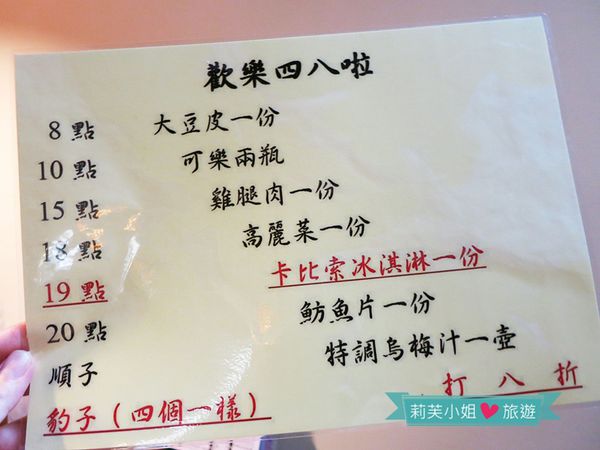 歡樂四八啦
8 點 大豆皮一份
10 點 可樂兩瓶
15 點 雞腿肉一份
18 點 高麗菜一份
19 點 卡比索冰淇淋一份
20 點 魴魚片一份
順子 特調烏梅汁一壺
豹子(四個一樣) 打八折
莉芙小姐 旅遊